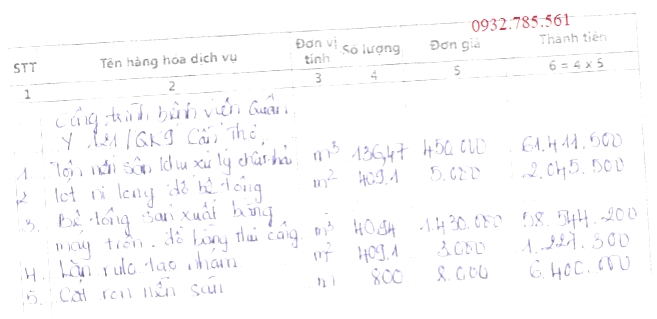 0932.785.561
STT Tên hàng hóa dịch vụ Đơn vị tính Số lượng Đơn giá Thành tiền
1 2 3 4 5 6 = 4 x 5
Công trình bệnh viện Quân
Y 121/QK9 Cần Thơ
1 Tôn nền sân khu xử lý chất thải m³ 136,47 450.000 61.411.500
2 lót ni long đổ bê tông m² 409,1 5.000 2.045.500
3. Bê tông sản xuất bằng
máy trộn. đổ bằng thủ công m³ 40,94 1.430.000 58.544.200
4. Lăn rulo tạo nhám m² 409,1 3.000 1.227.300
5. Cắt ron nền sân m 800 8.000 6.400.000